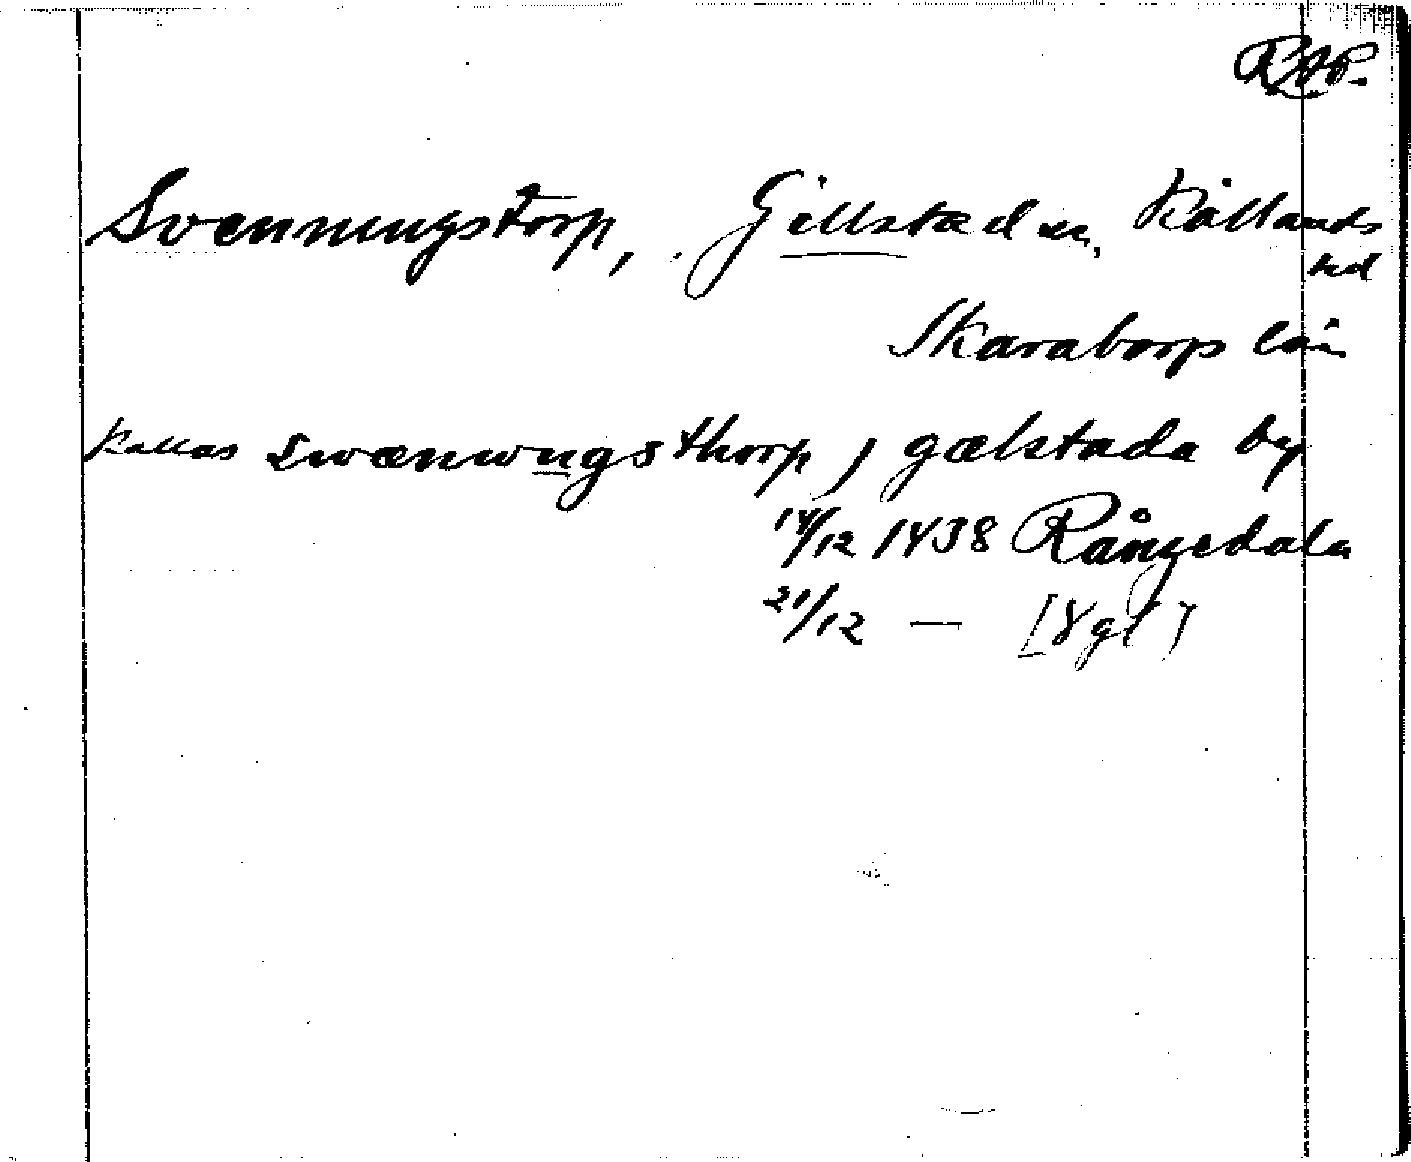 RAP.
Svenningstorp, Gillstad sn, Kållands
hd
Skaraborgs län
kallas swænungsthorp j gælstada by
14/12 1438 Rångedala
21/12 — [Vgl]